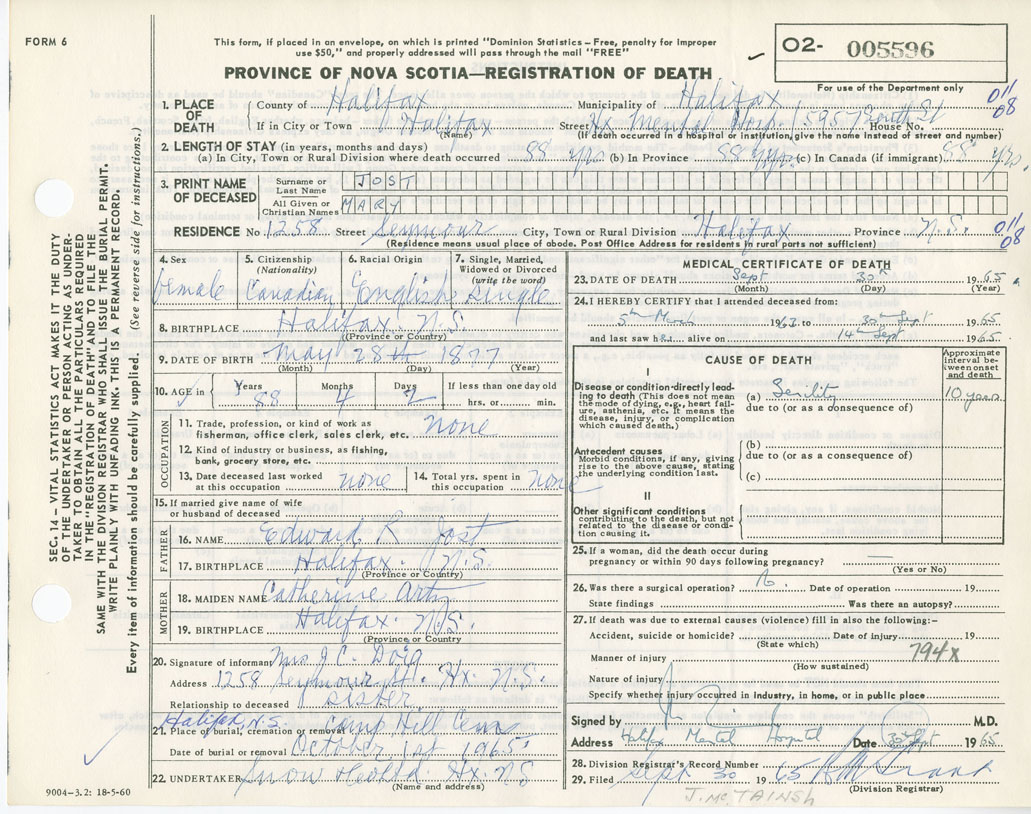 FORM 6
This form, if placed in an envelope, on which is printed "Dominion Statistics – Free, penalty for improper
use $50," and properly addressed will pass through the mail "FREE"
PROVINCE OF NOVA SCOTIA—REGISTRATION OF DEATH
O2- 005596
For use of the Department only
SEC. 14 – VITAL STATISTICS ACT MAKES IT THE DUTY
OF THE UNDERTAKER OR PERSON ACTING AS UNDER-
TAKER TO OBTAIN ALL THE PARTICULARS REQUIRED
IN THE "REGISTRATION OF DEATH" AND TO FILE THE
SAME WITH THE DIVISION REGISTRAR WHO SHALL ISSUE THE BURIAL PERMIT.
WRITE PLAINLY WITH UNFADING INK. THIS IS A PERMANENT RECORD.
Every item of information should be carefully supplied. (See reverse side for instructions.)
1. PLACE OF DEATH
County of Halifax Municipality of Halifax 011/08
If in City or Town Halifax Street Hx Mental Hosp. 1595 South St House No.
(Name) (If death occurred in a hospital or institution, give the name instead of street and number)
2. LENGTH OF STAY (in years, months and days)
(a) In City, Town or Rural Division where death occurred 88 yrs (b) In Province 88 yrs (c) In Canada (if immigrant) 88 yrs.
3. PRINT NAME OF DECEASED
Surname or Last Name JOST
All Given or Christian Names MARY
RESIDENCE No. 1258 Street Seymour City, Town or Rural Division Halifax Province N.S. 011/08
(Residence means usual place of abode. Post Office Address for residents in rural parts not sufficient)
4. Sex female
5. Citizenship (Nationality) Canadian
6. Racial Origin English
7. Single, Married, Widowed or Divorced (write the word) Single
8. BIRTHPLACE Halifax. N.S.
(Province or Country)
9. DATE OF BIRTH May 28th 1877
(Month) (Day) (Year)
10. AGE in Years 88 Months 4 Days 2 If less than one day old hrs. or min.
OCCUPATION
11. Trade, profession, or kind of work as
fisherman, office clerk, sales clerk, etc. none
12. Kind of industry or business, as fishing,
bank, grocery store, etc.
13. Date deceased last worked at this occupation none
14. Total yrs. spent in this occupation none
15. If married give name of wife
or husband of deceased
FATHER
16. NAME Edward R Jost
17. BIRTHPLACE Halifax. N.S.
(Province or Country)
MOTHER
18. MAIDEN NAME Catherine Artz
19. BIRTHPLACE Halifax. N.S.
(Province or Country)
20. Signature of informant Mrs J. C. Doig
Address 1258 Seymour St. Hx. N.S.
Relationship to deceased Sister
Halifax, N.S. Camp Hill Cem
21. Place of burial, cremation or removal
Date of burial or removal October 1st 1965
22. UNDERTAKER Snow Hx. N.S
(Name and address)
9004–3.2: 18-5-60
MEDICAL CERTIFICATE OF DEATH
23. DATE OF DEATH Sept 30th 1965
(Month) (Day) (Year)
24. I HEREBY CERTIFY that I attended deceased from:
5th March 1963 to 30th Sept 1965
and last saw her alive on 14th Sept 1965.
CAUSE OF DEATH
Approximate interval between onset and death
I
Disease or condition directly leading to death (This does not mean
the mode of dying, e.g., heart failure, asthenia, etc. It means the
disease, injury, or complication
which caused death.)
(a) Senility 10 years
due to (or as a consequence of)
Antecedent causes
Morbid conditions, if any, giving
rise to the above cause, stating
the underlying condition last.
(b)
due to (or as a consequence of)
(c)
II
Other significant conditions
contributing to the death, but not
related to the disease or condition causing it.
25. If a woman, did the death occur during
pregnancy or within 90 days following pregnancy? —
(Yes or No)
26. Was there a surgical operation? No. Date of operation 19
State findings Was there an autopsy?
27. If death was due to external causes (violence) fill in also the following:–
Accident, suicide or homicide? Date of injury 19
(State which)
Manner of injury 794X
(How sustained)
Nature of injury
Specify whether injury occurred in industry, in home, or in public place
Signed by M.D.
Address Halifax Mental Hospital Date 30 Sept 1965
28. Division Registrar's Record Number
29. Filed Sept 30 1965
(Division Registrar)
J. McTAINSH